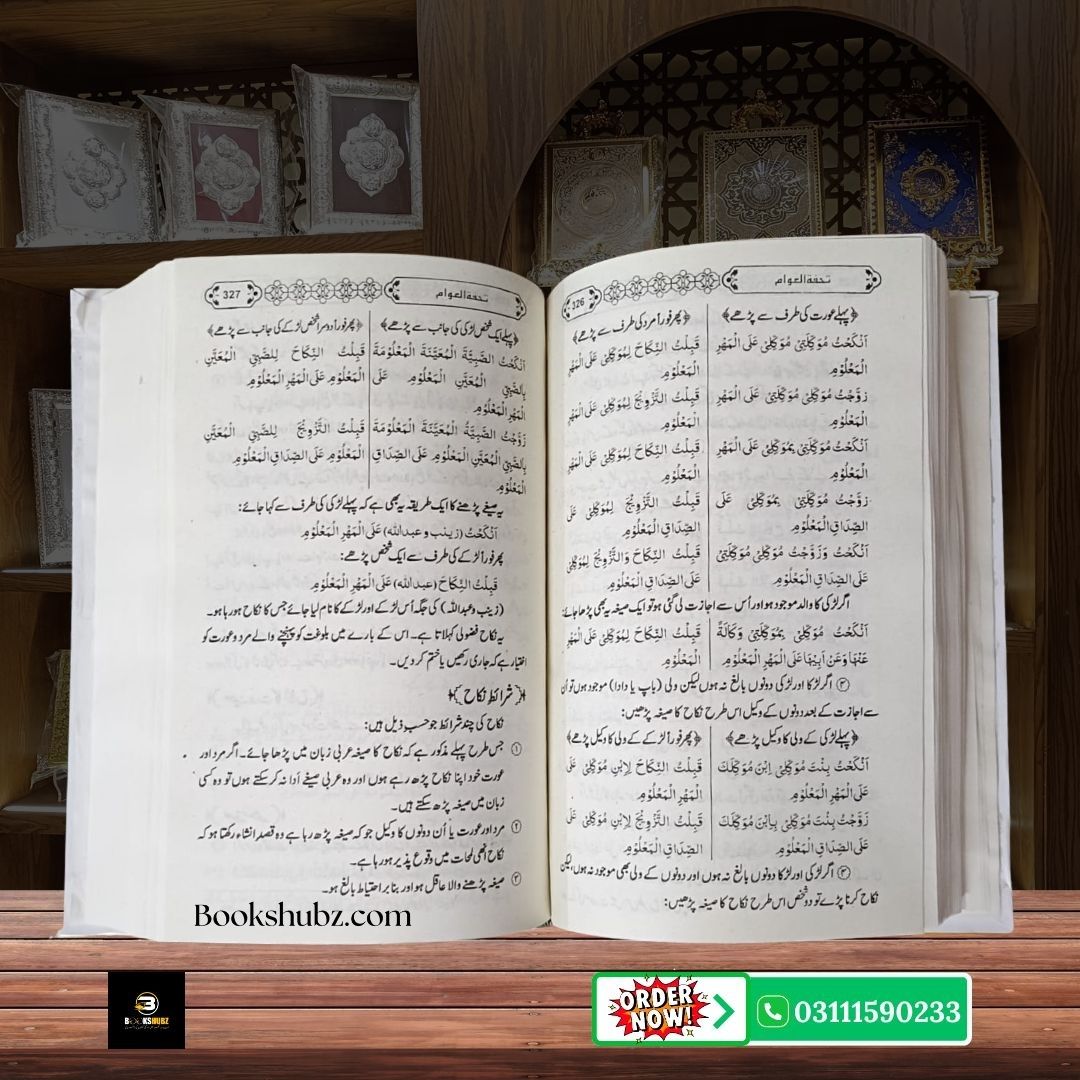 تحفۃ العوام
326
﴿پہلے عورت کی طرف سے پڑھے﴾
﴿پھر فوراً مرد کی طرف سے پڑھے﴾
اَنْکَحْتُ مُوَکِّلَتِیْ مُوَکِّلِیْ عَلَی الْمَهْرِ
الْمَعْلُوْمِ
قَبِلْتُ النِّکَاحَ لِمُوَکِّلِیْ عَلَی الْمَهْرِ
الْمَعْلُوْمِ
زَوَّجْتُ مُوَکِّلِیْ مُوَکِّلَتِیْ عَلَی الْمَهْرِ
الْمَعْلُوْمِ
قَبِلْتُ التَّزْوِیْجَ لِمُوَکِّلِیْ عَلَی الْمَهْرِ
الْمَعْلُوْمِ
اَنْکَحْتُ مُوَکِّلَتِیْ بِمُوَکِّلِیْ عَلَی الْمَهْرِ
الْمَعْلُوْمِ
قَبِلْتُ النِّکَاحَ لِمُوَکِّلِیْ عَلَی الْمَهْرِ
الْمَعْلُوْمِ
زَوَّجْتُ مُوَکِّلَتِیْ بِمُوَکِّلِیْ عَلَی
الصِّدَاقِ الْمَعْلُوْمِ
قَبِلْتُ التَّزْوِیْجَ لِمُوَکِّلِیْ عَلَی
الصِّدَاقِ الْمَعْلُوْمِ
اَنْکَحْتُ وَزَوَّجْتُ مُوَکِّلِیْ مُوَکِّلَتِیْ
عَلَی الصِّدَاقِ الْمَعْلُوْمِ
قَبِلْتُ النِّکَاحَ وَالتَّزْوِیْجَ لِمُوَکِّلِیْ
عَلَی الصِّدَاقِ الْمَعْلُوْمِ
اگر لڑکی کا والد موجود ہو اور اُس سے اجازت لی گئی ہو تو ایک صیغہ یہ بھی پڑھا جائے:
اَنْکَحْتُ مُوَکِّلِیْ بِمُوَکِّلَتِیْ وَکَالَةً
عَنْهَا وَعَنْ اَبِیْهَا عَلَی الْمَهْرِ الْمَعْلُوْمِ
قَبِلْتُ النِّکَاحَ لِمُوَکِّلِیْ عَلَی الْمَهْرِ
الْمَعْلُوْمِ
③ اگر لڑکا اور لڑکی دونوں بالغ نہ ہوں لیکن ولی (باپ یا دادا) موجود ہوں تو اُن
سے اجازت کے بعد دونوں کے وکیل اس طرح نکاح کا صیغہ پڑھیں:
﴿پہلے لڑکی کے ولی کا وکیل پڑھے﴾
﴿پھر فوراً لڑکے کے ولی کا وکیل پڑھے﴾
اَنْکَحْتُ بِنْتَ مُوَکِّلِیْ اِبْنَ مُوَکِّلِكَ
عَلَی الْمَهْرِ الْمَعْلُوْمِ
قَبِلْتُ النِّکَاحَ لِابْنِ مُوَکِّلِیْ عَلَی
الْمَهْرِ الْمَعْلُوْمِ
زَوَّجْتُ بِنْتَ مُوَکِّلِیْ بِابْنِ مُوَکِّلِكَ
عَلَی الصِّدَاقِ الْمَعْلُوْمِ
قَبِلْتُ التَّزْوِیْجَ لِابْنِ مُوَکِّلِیْ عَلَی
الصِّدَاقِ الْمَعْلُوْمِ
③ اگر لڑکی اور لڑکا دونوں بالغ نہ ہوں اور دونوں کے ولی بھی موجود نہ ہوں، لیکن
نکاح کرنا پڑے تو دو شخص اس طرح نکاح کا صیغہ پڑھیں:
تحفۃ العوام
327
﴿پہلے ایک شخص لڑکی کی جانب سے پڑھے﴾
﴿پھر فوراً دوسرا شخص لڑکے کی جانب سے پڑھے﴾
اَنْکَحْتُ الصَّبِیَّةَ الْمُعَیَّنَةَ الْمَعْلُوْمَةَ
بِالصَّبِیِّ الْمُعَیَّنِ الْمَعْلُوْمِ عَلَی
الْمَهْرِ الْمَعْلُوْمِ
قَبِلْتُ النِّکَاحَ لِلصَّبِیِّ الْمُعَیَّنِ
الْمَعْلُوْمِ عَلَی الْمَهْرِ الْمَعْلُوْمِ
زَوَّجْتُ الصَّبِیَّةَ الْمُعَیَّنَةَ الْمَعْلُوْمَةَ
بِالصَّبِیِّ الْمُعَیَّنِ الْمَعْلُوْمِ عَلَی الصِّدَاقِ
الْمَعْلُوْمِ
قَبِلْتُ التَّزْوِیْجَ لِلصَّبِیِّ الْمُعَیَّنِ
الْمَعْلُوْمِ عَلَی الصِّدَاقِ الْمَعْلُوْمِ
یہ صیغے پڑھنے کا ایک طریقہ یہ بھی ہے کہ پہلے لڑکی کی طرف سے کہا جائے:
اَنْکَحْتُ (زینب و عبداللہ) عَلَی الْمَهْرِ الْمَعْلُوْمِ
پھر فوراً لڑکے کی طرف سے ایک شخص پڑھے:
قَبِلْتُ النِّکَاحَ (عبداللہ) عَلَی الْمَهْرِ الْمَعْلُوْمِ
(زینب و عبداللہ) کی جگہ اُس لڑکے اور لڑکے کا نام لیا جائے جس کا نکاح ہو رہا ہو۔
یہ نکاح فضولی کہلاتا ہے۔ اس کے بارے میں بلوغت کو پہنچنے والے مرد و عورت کو
اختیار ہے کہ جاری رکھیں یا ختم کر دیں۔
﴿شرائط نکاح﴾
نکاح کی چند شرائط جو حسب ذیل ہیں:
① جس طرح پہلے مذکور ہے کہ نکاح کا صیغہ عربی زبان میں پڑھا جائے۔ اگر مرد اور
عورت خود اپنا نکاح پڑھ رہے ہوں اور وہ عربی صیغے اَدا نہ کر سکتے ہوں تو وہ کسی
زبان میں صیغہ پڑھ سکتے ہیں۔
② مرد اور عورت یا اُن دونوں کا وکیل جو کہ صیغہ پڑھ رہا ہے وہ قصد انشاء رکھتا ہو کہ
نکاح انھی لمحات میں وقوع پذیر ہو رہا ہے۔
③ صیغہ پڑھنے والا عاقل ہو اور بنا بر احتیاط بالغ ہو۔
Bookshubz.com
BOOKSHUBZ
ORDER
NOW!
03111590233